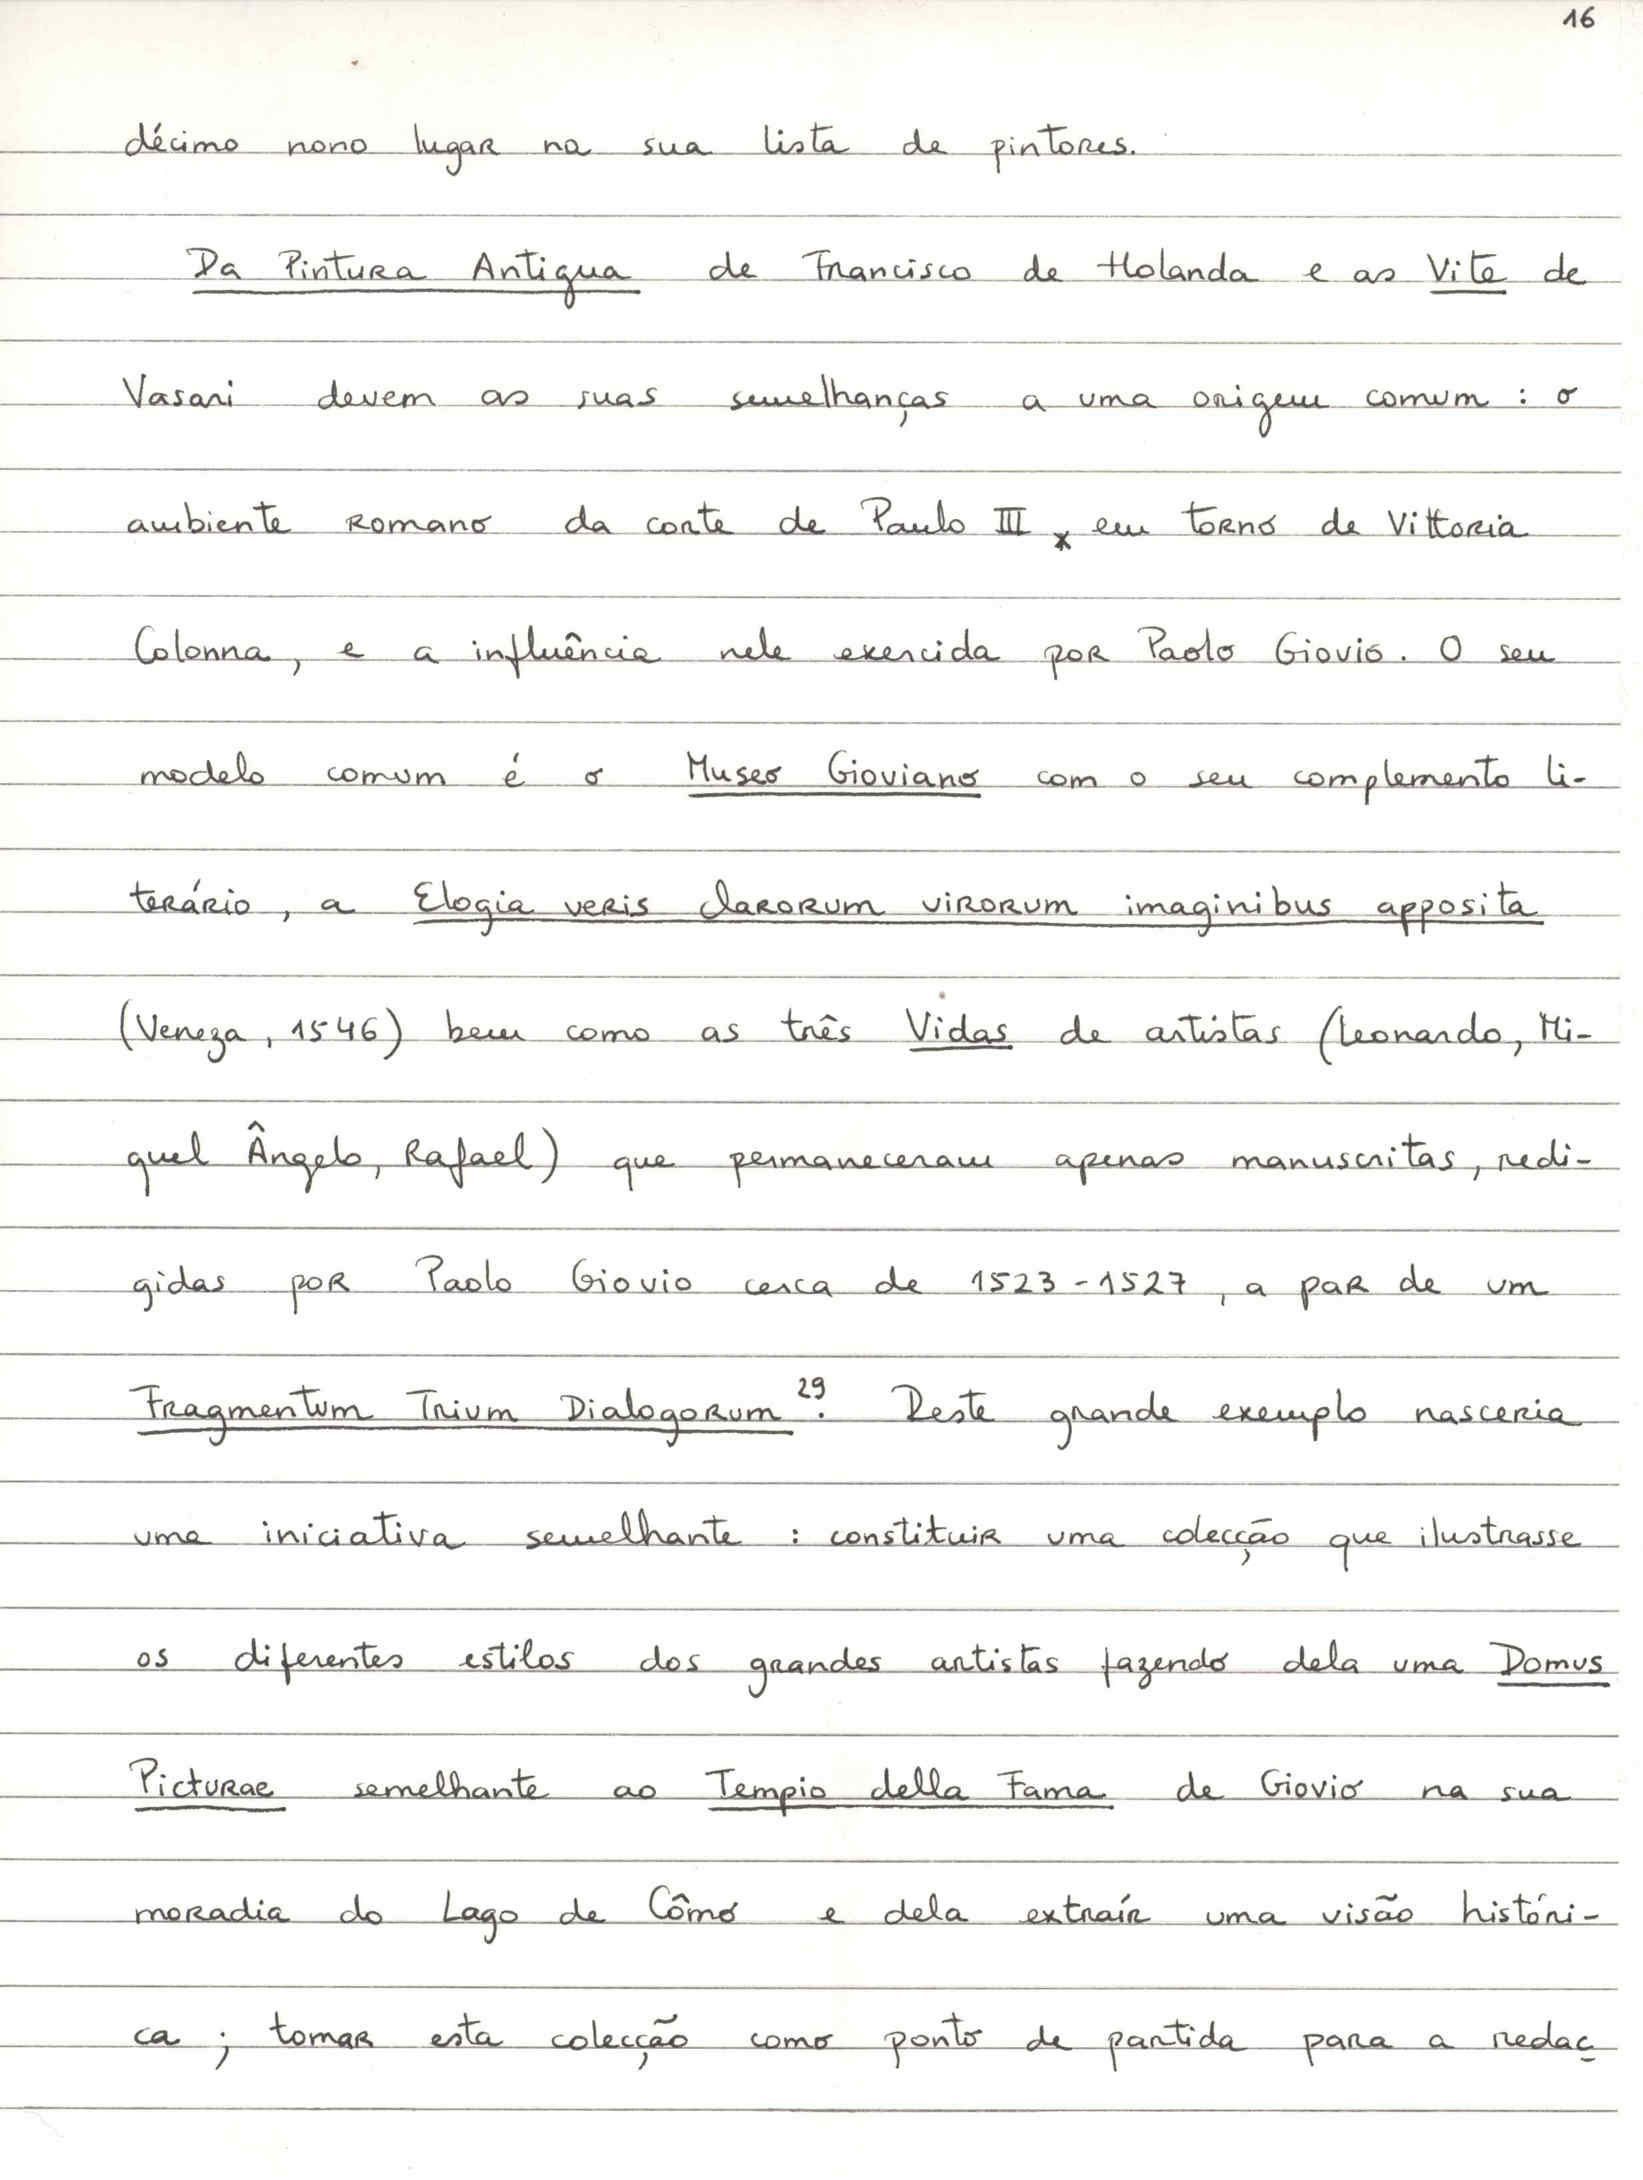 16
décimo nono lugar na sua lista de pintores.
Da Pintura Antigua de Francisco de Holanda e as Vite de
Vasari devem as suas semelhanças a uma origem comum : o
ambiente romano da corte de Paulo III x em torno de Vittoria
Colonna, e a influência nele exercida por Paolo Giovio. O seu
modelo comum é o Museo Gioviano com o seu complemento li-
terário, a Elogia veris clarorum virorum imaginibus apposita
(Veneza, 1546) bem como as três Vidas de artistas (Leonardo, Mi-
guel Ângelo, Rafael) que permaneceram apenas manuscritas, redi-
gidas por Paolo Giovio cerca de 1523-1527, a par de um
Fragmentum Trium Dialogorum 29. Deste grande exemplo nasceria
uma iniciativa semelhante : constituir uma colecção que ilustrasse
os diferentes estilos dos grandes artistas fazendo dela uma Domus
Picturae semelhante ao Tempio della Fama de Giovio na sua
moradia do Lago de Cômo e dela extraír uma visão históri-
ca ; tomar esta colecção como ponto de partida para a redaç